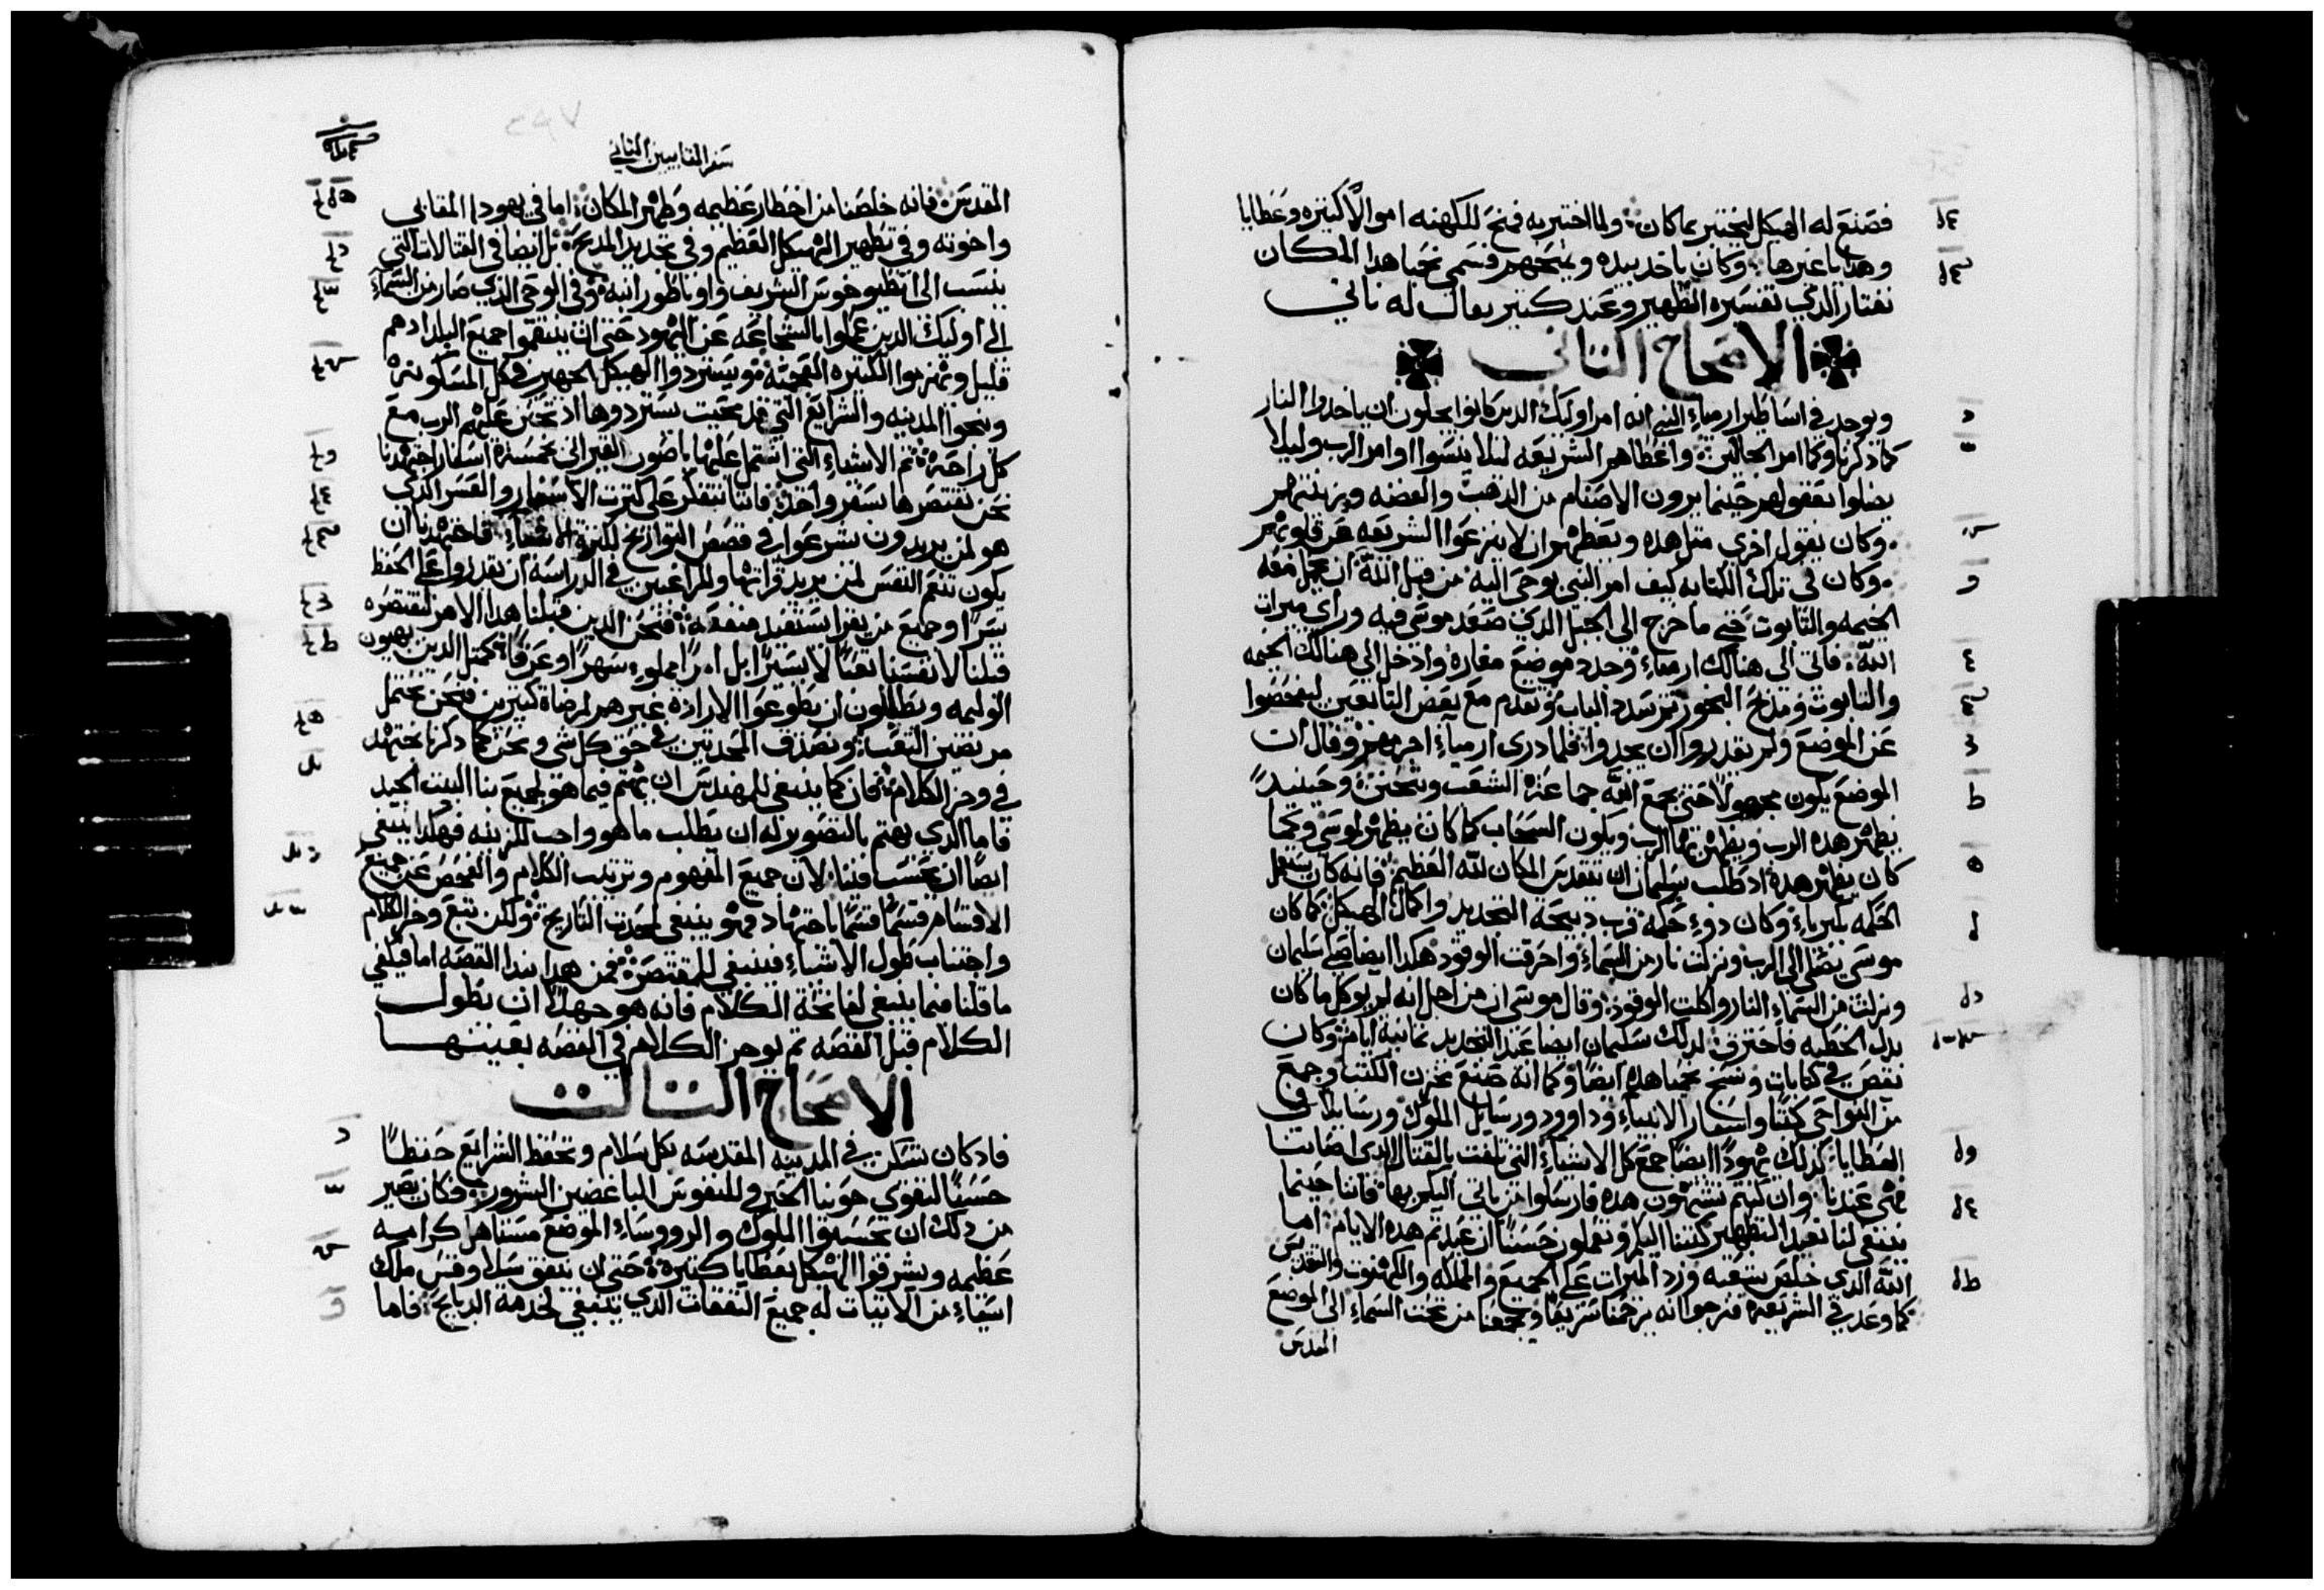 فصنع له الهيكل ليختبر ما كان ولما اختبر به فمنح للكهنه اموالاً كتيره وعطايا
وهدايا غيرها وكان ياخد بيده ويمنحهم فسمى نحميا هدا المكان
نفتار الدي تفسيره التطهير وعند كتير يقال له نافي
الاصحاح التاني
ويوجد في اساطير ارمياء النبي انه امر اوليك الدين كانوا يجلون ان ياخدوا النار
كما دكرنا وكما امر الجالين واعطاهم الشريعه ليلا ينسوا اوامر الرب وليلا
يضلوا بعقولهم حينما يرون الاصنام من الدهب والفضه وزينتهم
وكان يقول اخري متل هده ويعظهم ان لا ينزعوا الشريعه عن قلوبهم
وكان في تلك الكتابه كيف امر النبي بوحى اليه من قبل الله ان تحمل معه
الخيمه والتابوت حتي ما خرج الى الجبل الدي صعد موسى فيه وراي ميرات
الله فاتى الى هنالك ارمياء وجد موضع مغاره وادخل الى هنالك الخيمه
والتابوت ومدبح البخور تم سدد الباب وتقدم مع بعض التابعين ليفحصوا
عن الموضع ولم يقدروا ان يجدوا فلما درى ارمياء اجرمهم وقال ان
الموضع يكون مجهولاً حتى يجمع الله جماعة الشعب ويتحنن وحينيد
يظهر هده الرب ويظهر بها الرب ويكون السحاب كما كان يظهر لموسى وكما
كان يظهر هده اد طلب سليمان ان يتقدس المكان لله العظيم فانه كان يستعمل
الحكمه بكبرياء وكان دوء حكمه قرب دبيحة التجديد واكمال الهيكل كما كان
موسى يصلى الى الرب ونزلت نار من السماء واحرقت الوقود هكدا ايضا صلى سليمان
ونزلت من السماء النار واكلت الوقود وقال موسى ان من اجل انه لم يوكل ما كان
بدل الخطيه فاحترق لدلك سليمان ايضا عيد التجديد تمانية ايام وكان
نقص في كتابات ونسخ نحميا هده ايضا وكما انه صنع مخزن الكتب وجمع
من النواحي كتبا واسفار الانبياء وداوود ورسايل الملوك ورسايلا في
العطايا كدلك يهودا ايضا جمع كل الاشياء التي تلفت بالقتال الدي اصابنا
فهى عندنا وان كنتم تشتهون هده فارسلوا من ياتى اليكم بها فاننا حينما
ينبغي لنا نعيد التطهير كتبنا اليكم وتعملون حسنا ان عيدتم هده الايام اما
الله الدي خلص شعبه ورد الميرات على الجميع والمملكه والكهنوت والتقديس
كما وعد في الشريعه فنرجوا انه يرحمنا سريعا ويجمعنا من تحت السماء الى الموضع
المقدس
سفر المقابيين التاني
المقدس فانه خلصنا من اخطار عظيمه وطهر المكان اما في يهودا المقابي
واخوته وفي تطهير الهيكل العظيم وفي تجديد المدبح بل ايضا في القتالات التي
ينسب الى انطيوخوس الشريف واوباطور ابنه وفى الوحى الدي صار من السماء
الي اوليك الدين عملوا بالشجاعه عن اليهود حتى ان ينتقموا جميع البلد ادهم
قليل ويهزموا الكتيره العجميه ويستردوا الهيكل الشهير في كل المسكونه
وينجوا المدينه والشرايع التي قد محيت يستردوها اد تحنن عليهم الرب مع
كل راحه تم الاشياء التي اشتمل عليها ياصون القيراني بخمسة اسفار اجتهدنا
نحن نختصرها بسفر واحد فاننا نتفكر على كترت الاسفار والعسر الدي
هو لمن يريدون يشرعوا في قصص التواريخ لكترة الاشياء فاجتهدنا ان
يكون تنعم النفس لمن يريد قراتها وللراغبين في الدراسه ان يقدروا على الحفظ
يسرًا وجميع من يقرا يستفيد منفعه فنحن الدين قبلنا هدا الامر لنختصره
قبلنا لانفسنا تعبًا لا يسيرًا بل امرًا مملوء سهرًا وعرقًا كمتل الدين يهيون
الوليمه ويطلبون ان يطوعوا الاراده غيرهم لمرضاة كتيرين فنحن نحتمل
مرتضين التعب ونصدف المحدتين في حق كل شي ونحن كما دكرنا نجتهد
في وجز الكلام فان كما ينبغي للمهندس ان يهتم فيما هو لجميع بنا البيت الجيد
فاما الدي يهتم بالتصوير له ان يطلب ما هو واجب للزينه فهكدا ينبغي
ايضًا ان يحسب فينا لان جميع المفهوم وترتيب الكلام والفحص عن جميع
الاقسام قسمًا قسمًا باجتهاد فهو ينبغي لمحدت التاريخ ولكن تتبع وجز الكلام
واجتناب طول الاشياء فينبغي للمختصره فمن هدا نبدا القصه اما فيكفي
ما قلنا فيما ينبغي لفاتحة الكلام فانه هو جهلاً ان يطول
الكلام قبل القصه تم يوجز الكلام في القصه بعينها
الاصحاح التالت
فاد كان تسكن في المدينه المقدسه بكل سلام وتحفظ الشرايع حفظًا
حسنًا لتقوي حونيا الحبر وللنفوس الباغضين الشرور وكان يصير
من دلك ان تحسبوا الملوك والرووساء الموضع مستاهل كراميه
عظيمه ويشرفوا الهيكل بعطايا كتيره حتى ان يتفق سلاوقس ملك
اسياء من الاتيات له جميع النفقات الدي ينبغي لخدمة الدبايح فاما